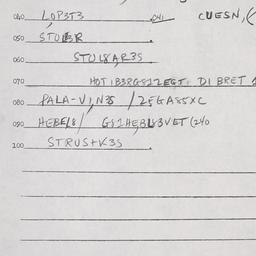 040 LOP3T3 041 CUESN,
050 STOLBR
060 STOL8AR3S
070 HOTIB3RGS12EGT: DI BRET
080 PALA-VIN3S / 2EGA85XC
090 HEBEL8/ GS1HEBLG3VET (240
100 STRUS+K3S